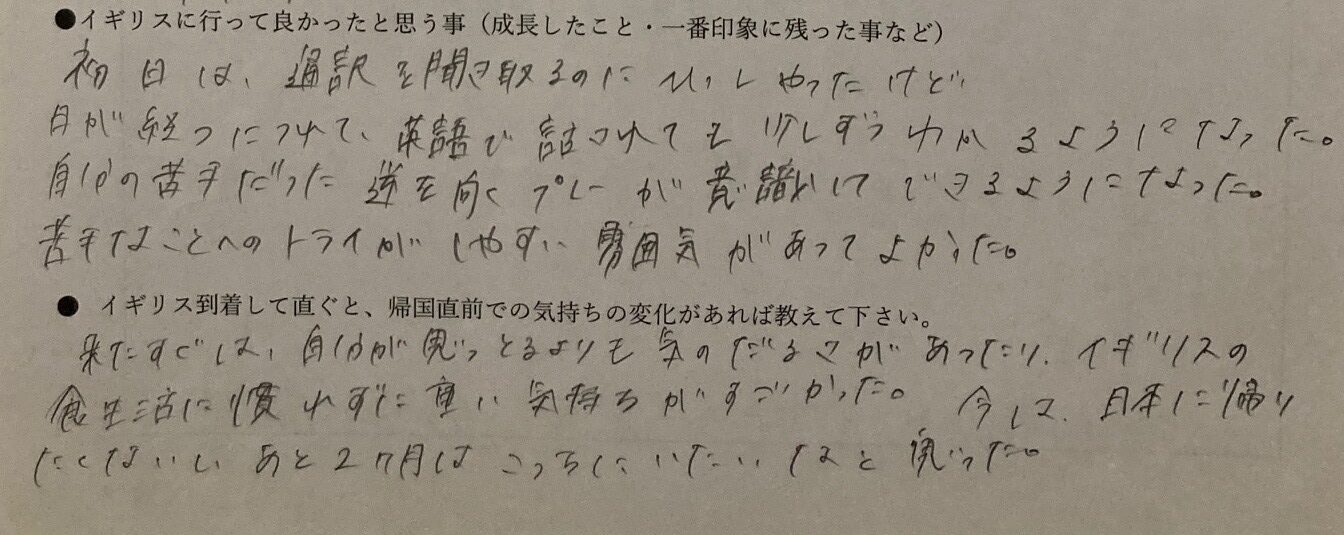 ●イギリスに行って良かったと思う事（成長したこと・一番印象に残った事など）
初日は、通訳を聞き取るのにひっしやったけど
日が経つにつれて、英語で話されても少しずつわかるようになった。
自分の苦手だった逆を向くプレーが意識してできるようになった。
苦手なことへのトライがしやすい雰囲気があってよかった。
● イギリス到着して直ぐと、帰国直前での気持ちの変化があれば教えて下さい。
来たすぐは、自分が思っとるよりも気のだるさがあったり、イギリスの
食生活に慣れずに重い気持ちがすごかった。今は、日本に帰り
たくないしあと2ヶ月はこっちにいたいなと思った。